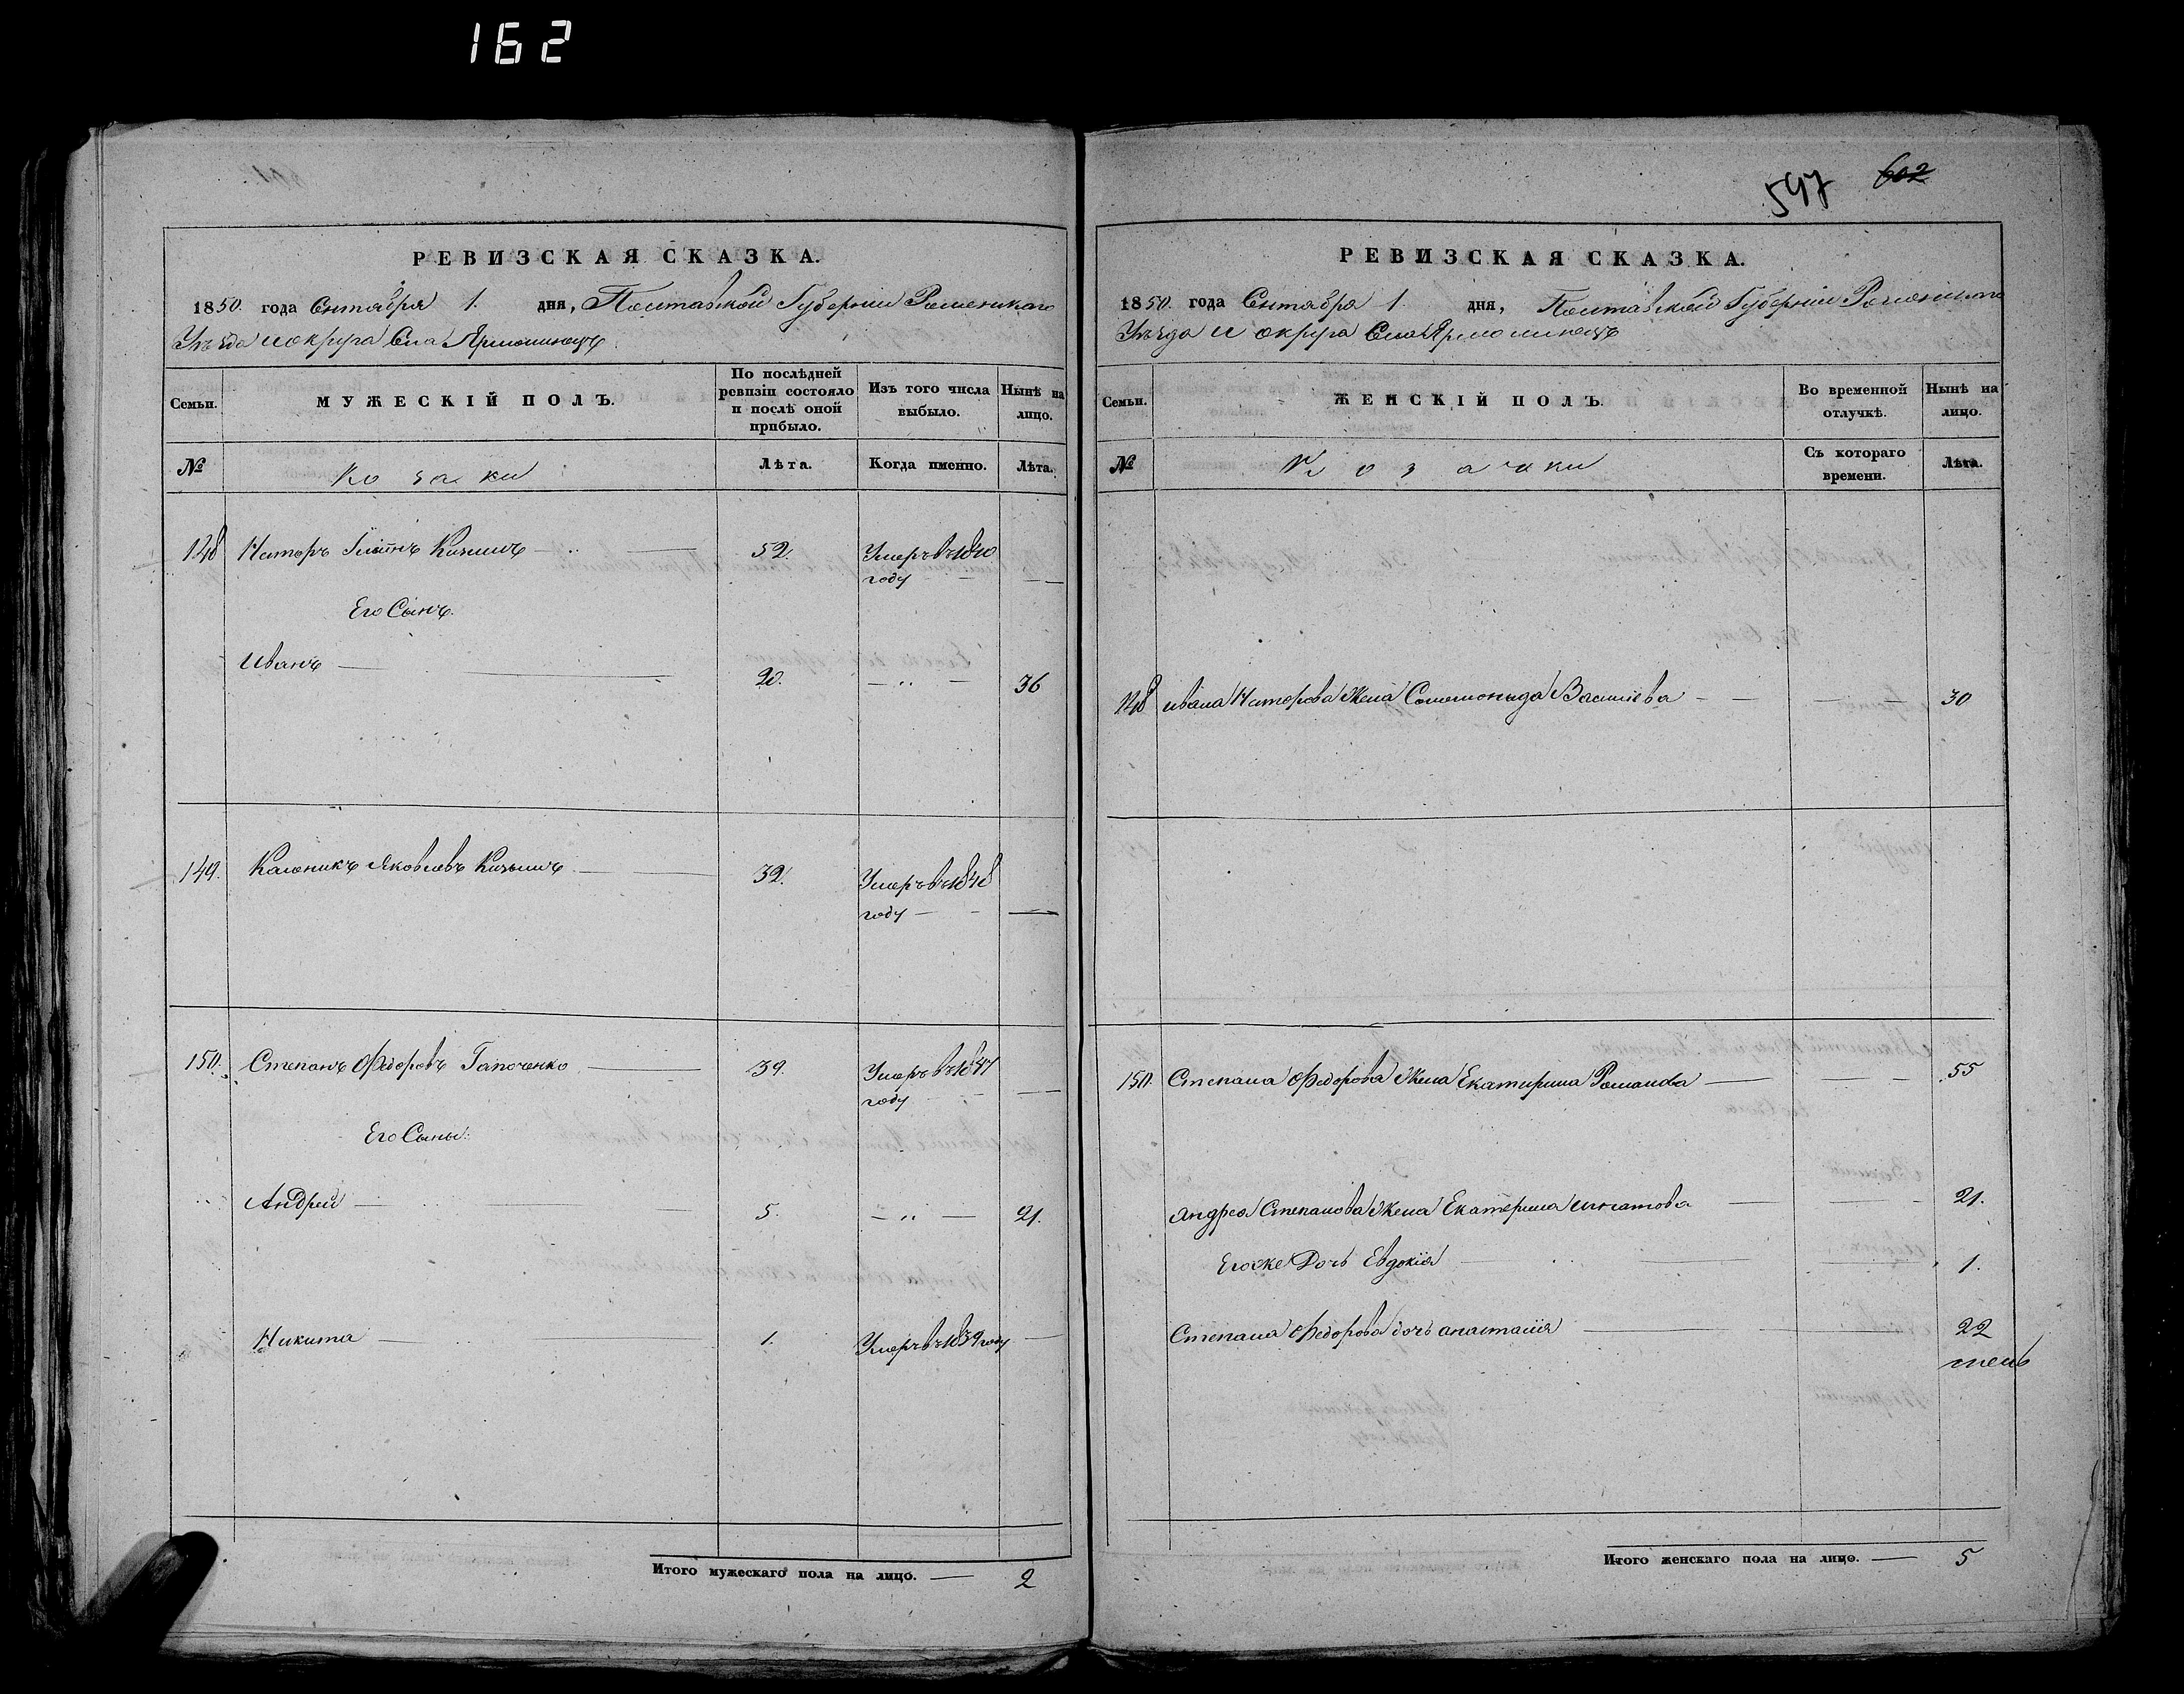 162
РЕВИЗСКАЯ СКАЗКА.
1850. года Сентября 1. дня, Полтавской Губернии Роменского
Уезда и округа Села Ярмолинецъ
Семьи.
МУЖЕСКІЙ ПОЛЪ.
По послѣдней ревизіи состояло и послѣ оной прибыло.
Изъ того числа выбыло.
Нынѣ на лицо.
№
Козаки
Лѣта.
Когда именно.
Лѣта.
148 52. Умеръ въ 1840
году
Его Сынъ.
Иванъ 20. — „ — 36
149. Каленикъ Яковлевъ 32. Умеръ въ 1848
году
150. Степанъ Федоровъ Гапоченко 39. Умеръ въ 1847
году
Его Сыны:
Андрей 5. — „ — 21.
Никита 1. Умеръ въ 1839 году
Итого мужескаго пола на лицо. — 2
547 602
РЕВИЗСКАЯ СКАЗКА.
1850. года Сентября 1. дня, Полтавской Губерніи Роменского
Уезда и округа Села Ярмолинецъ
Семьи.
ЖЕНСКІЙ ПОЛЪ.
Во временной отлучкѣ.
Нынѣ на лицо.
№
Козачки
Съ котораго времени.
Лѣта.
148 Ивана жена Соломонида Васильева 30
150. Степана Федорова жена Екатирина Романова 55
Андрея Степанова жена Екатерина Игнатова 21.
Его же Дочь Евдокія 1.
Степана Федорова дочь Анастасія 22
Итого женскаго пола на лицо. — 5